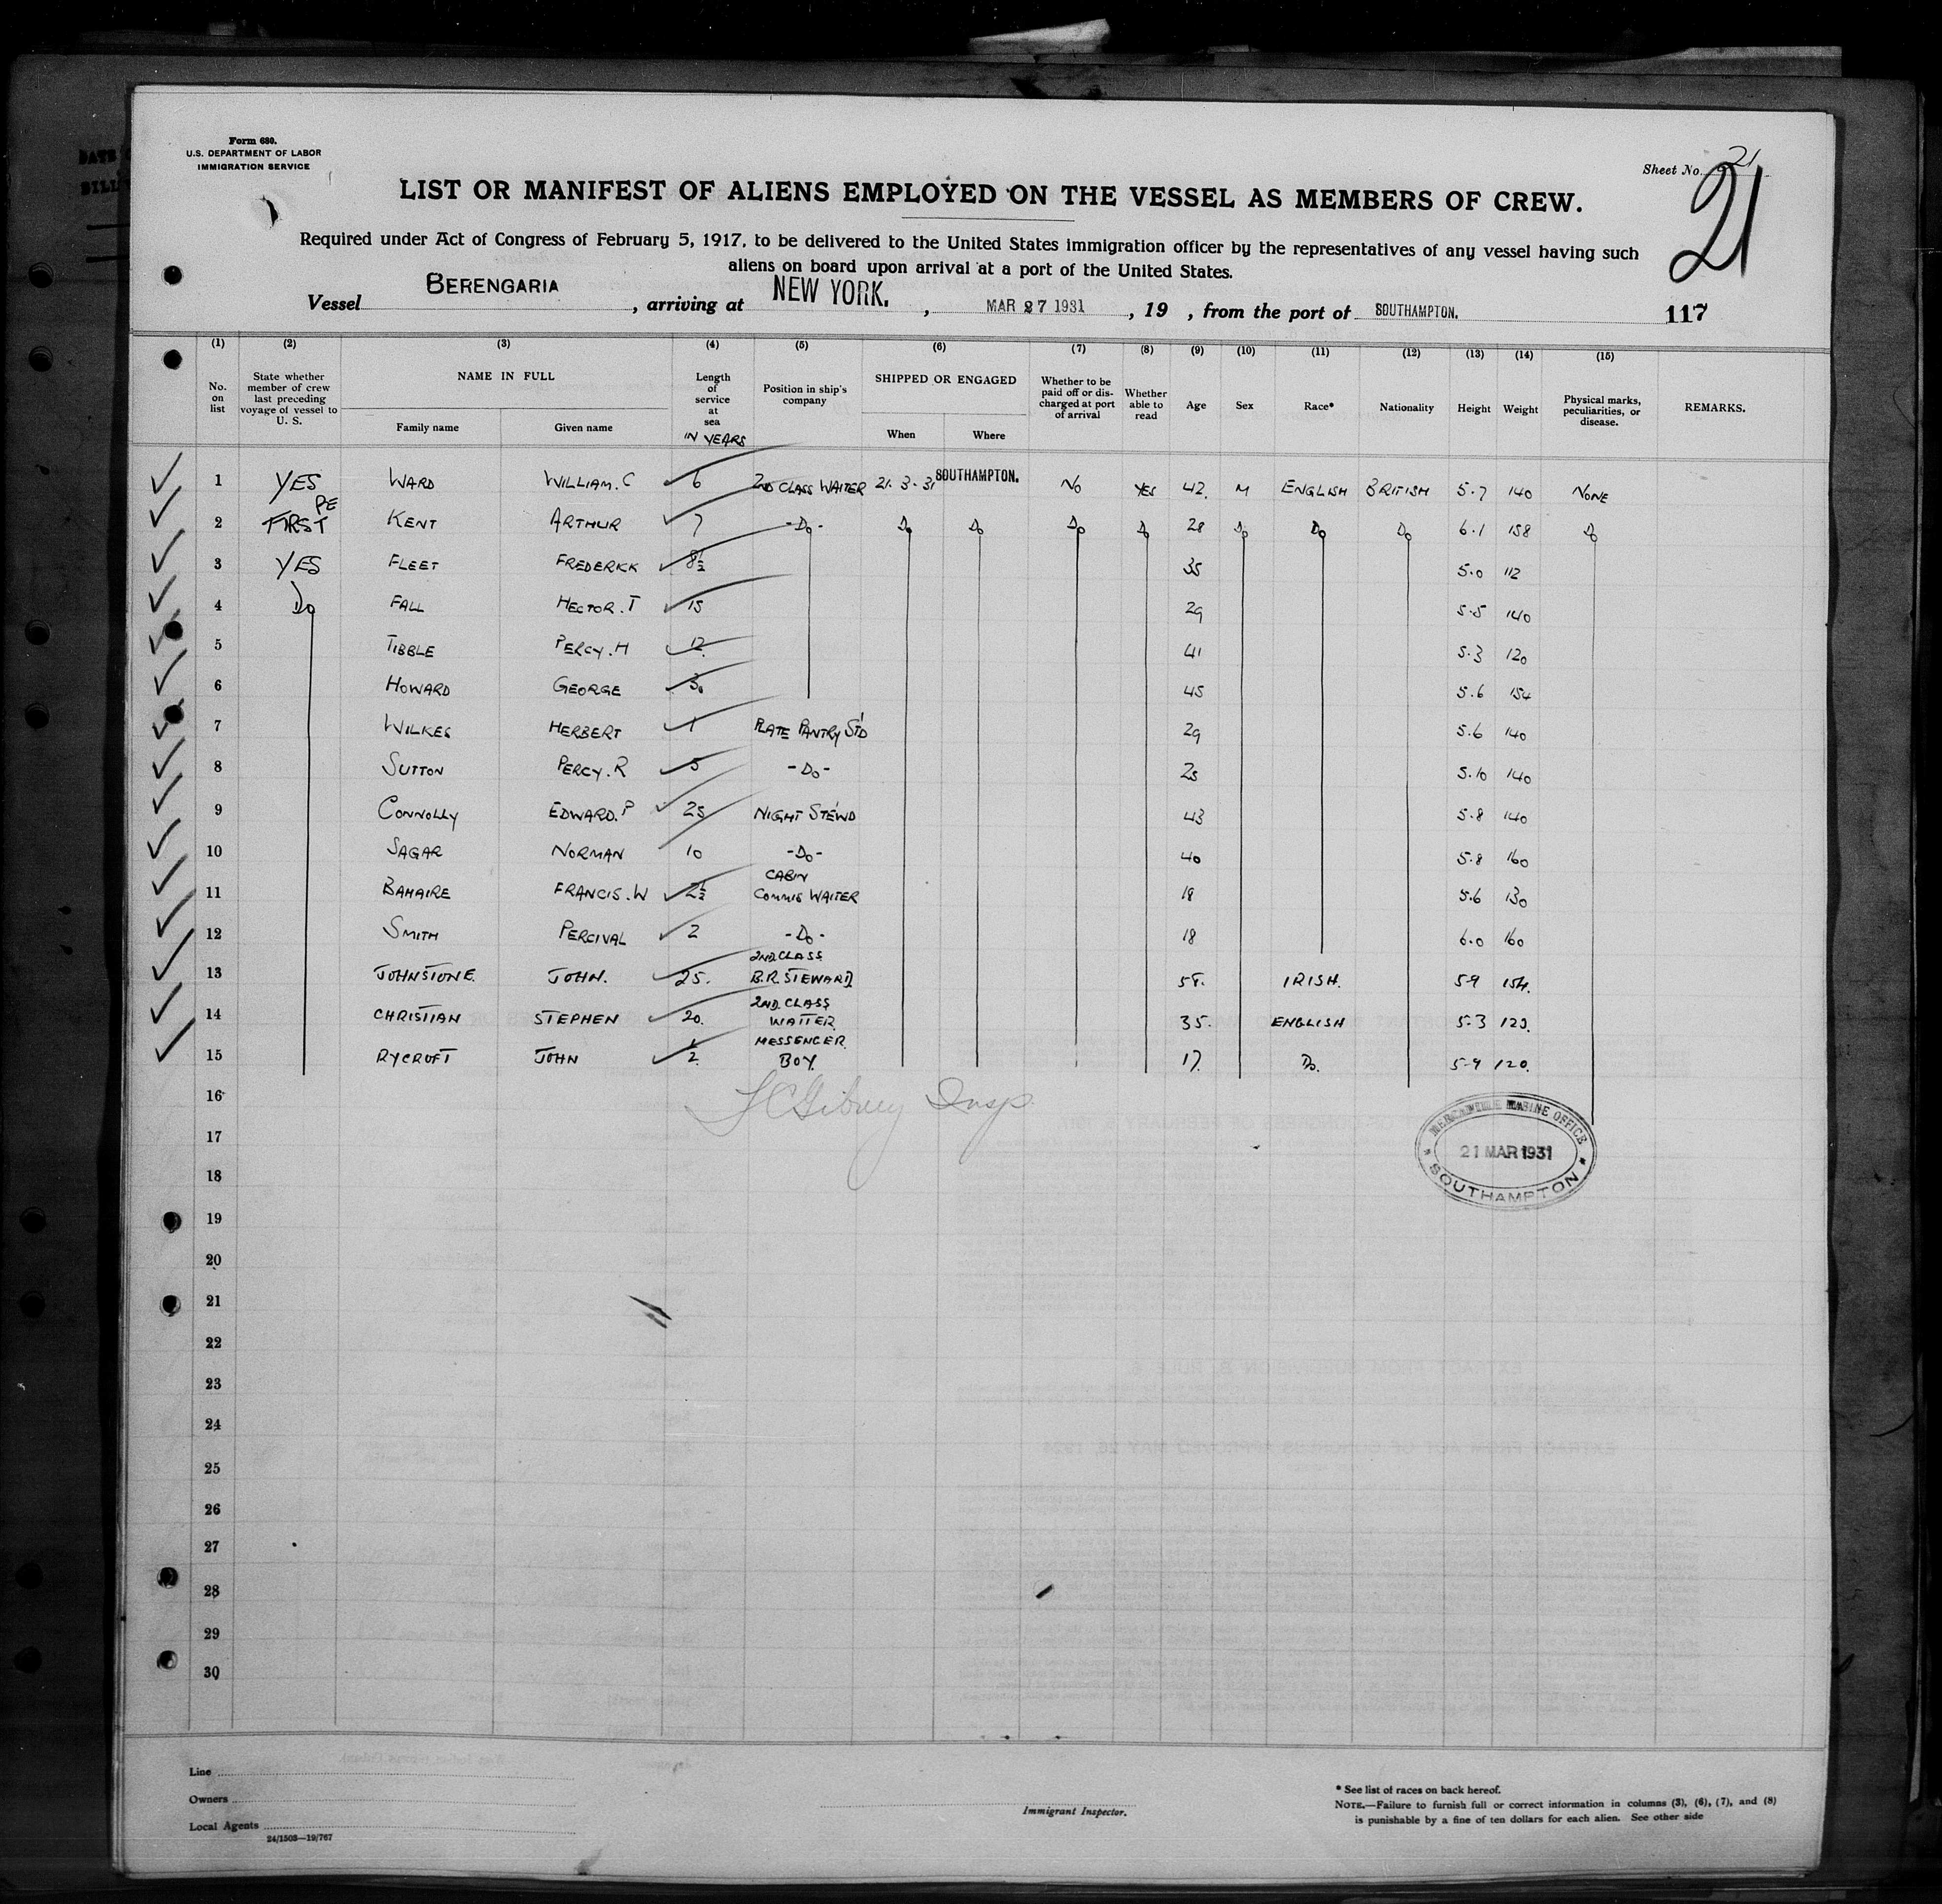 Form 680.
U.S. DEPARTMENT OF LABOR
IMMIGRATION SERVICE
Sheet No. 21
21
LIST OR MANIFEST OF ALIENS EMPLOYED ON THE VESSEL AS MEMBERS OF CREW.
Required under Act of Congress of February 5, 1917, to be delivered to the United States immigration officer by the representatives of any vessel having such
aliens on board upon arrival at a port of the United States.
Vessel BERENGARIA, arriving at NEW YORK., MAR 27 1931, 19 , from the port of SOUTHAMPTON. 117
(1) (2) (3) (4) (5) (6) (7) (8) (9) (10) (11) (12) (13) (14) (15)
No. on list State whether member of crew last preceding voyage of vessel to U. S. NAME IN FULL Family name Given name Length of service at sea IN YEARS Position in ship's company SHIPPED OR ENGAGED When Where Whether to be paid off or discharged at port of arrival Whether able to read Age Sex Race* Nationality Height Weight Physical marks, peculiarities, or disease. REMARKS.
1 YES WARD WILLIAM. C 6 2ND CLASS WAITER 21. 3. 31 SOUTHAMPTON. NO YES 42. M ENGLISH BRITISH 5.7 140 NONE
2 RE FIRST KENT ARTHUR 7 -Do- Do Do Do Do 28 Do Do Do 6.1 158 Do
3 YES FLEET FREDERICK 8½ 35 5.0 112
4 Do FALL HECTOR. T 15 29 5.5 140
5 TIBBLE PERCY. H 12 41 5.3 120
6 HOWARD GEORGE 30 45 5.6 154
7 WILKES HERBERT 1 PLATE PANTRY STD 29 5.6 140
8 SUTTON PERCY. R 5 -Do- 25 5.10 140
9 CONNOLLY EDWARD. P 25 NIGHT STEWD 43 5.8 140
10 SAGAR NORMAN 10 -Do- 40 5.8 160
11 BAHAIRE FRANCIS. W 2½ CABIN COMMIS WAITER 18 5.6 130
12 SMITH PERCIVAL 2 -Do- 18 6.0 160
13 JOHNSTONE. JOHN. 25. 2ND CLASS B.R. STEWARD 58. IRISH. 5-9 154.
14 CHRISTIAN STEPHEN 20. 2ND. CLASS WAITER 35. ENGLISH 5-3 120.
15 RYCROFT JOHN ½ MESSENGER BOY. 17. Do. 5-9 120.
16
17
18
19
20
21
22
23
24
25
26
27
28
29
30
MERCANTILE MARINE OFFICE
21 MAR 1931
SOUTHAMPTON
Line
Owners
Local Agents
24/1503—19/767
Immigrant Inspector.
* See list of races on back hereof.
NOTE.—Failure to furnish full or correct information in columns (3), (6), (7), and (8)
is punishable by a fine of ten dollars for each alien. See other side